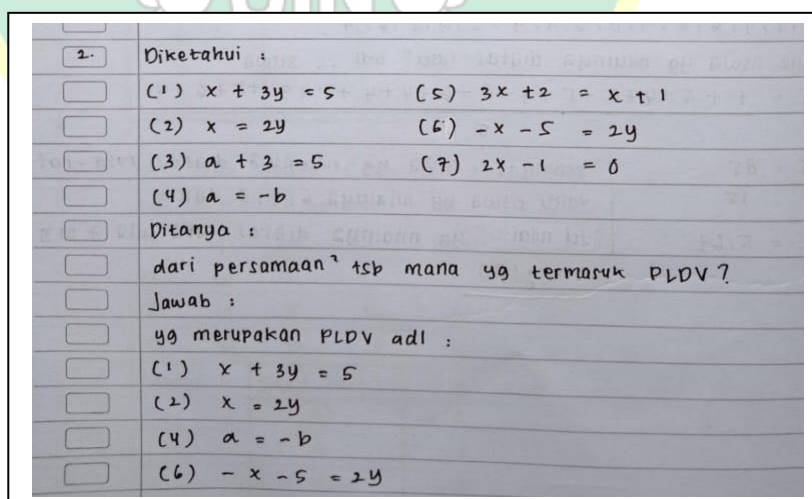 2. Diketahui :
(1) x + 3y = 5 (5) 3x + 2 = x + 1
(2) x = 2y (6) -x - 5 = 2y
(3) a + 3 = 5 (7) 2x - 1 = 0
(4) a = -b
Ditanya :
dari persamaan² tsb mana yg termasuk PLDV?
Jawab :
yg merupakan PLDV adl :
(1) x + 3y = 5
(2) x = 2y
(4) a = -b
(6) - x - 5 = 2y